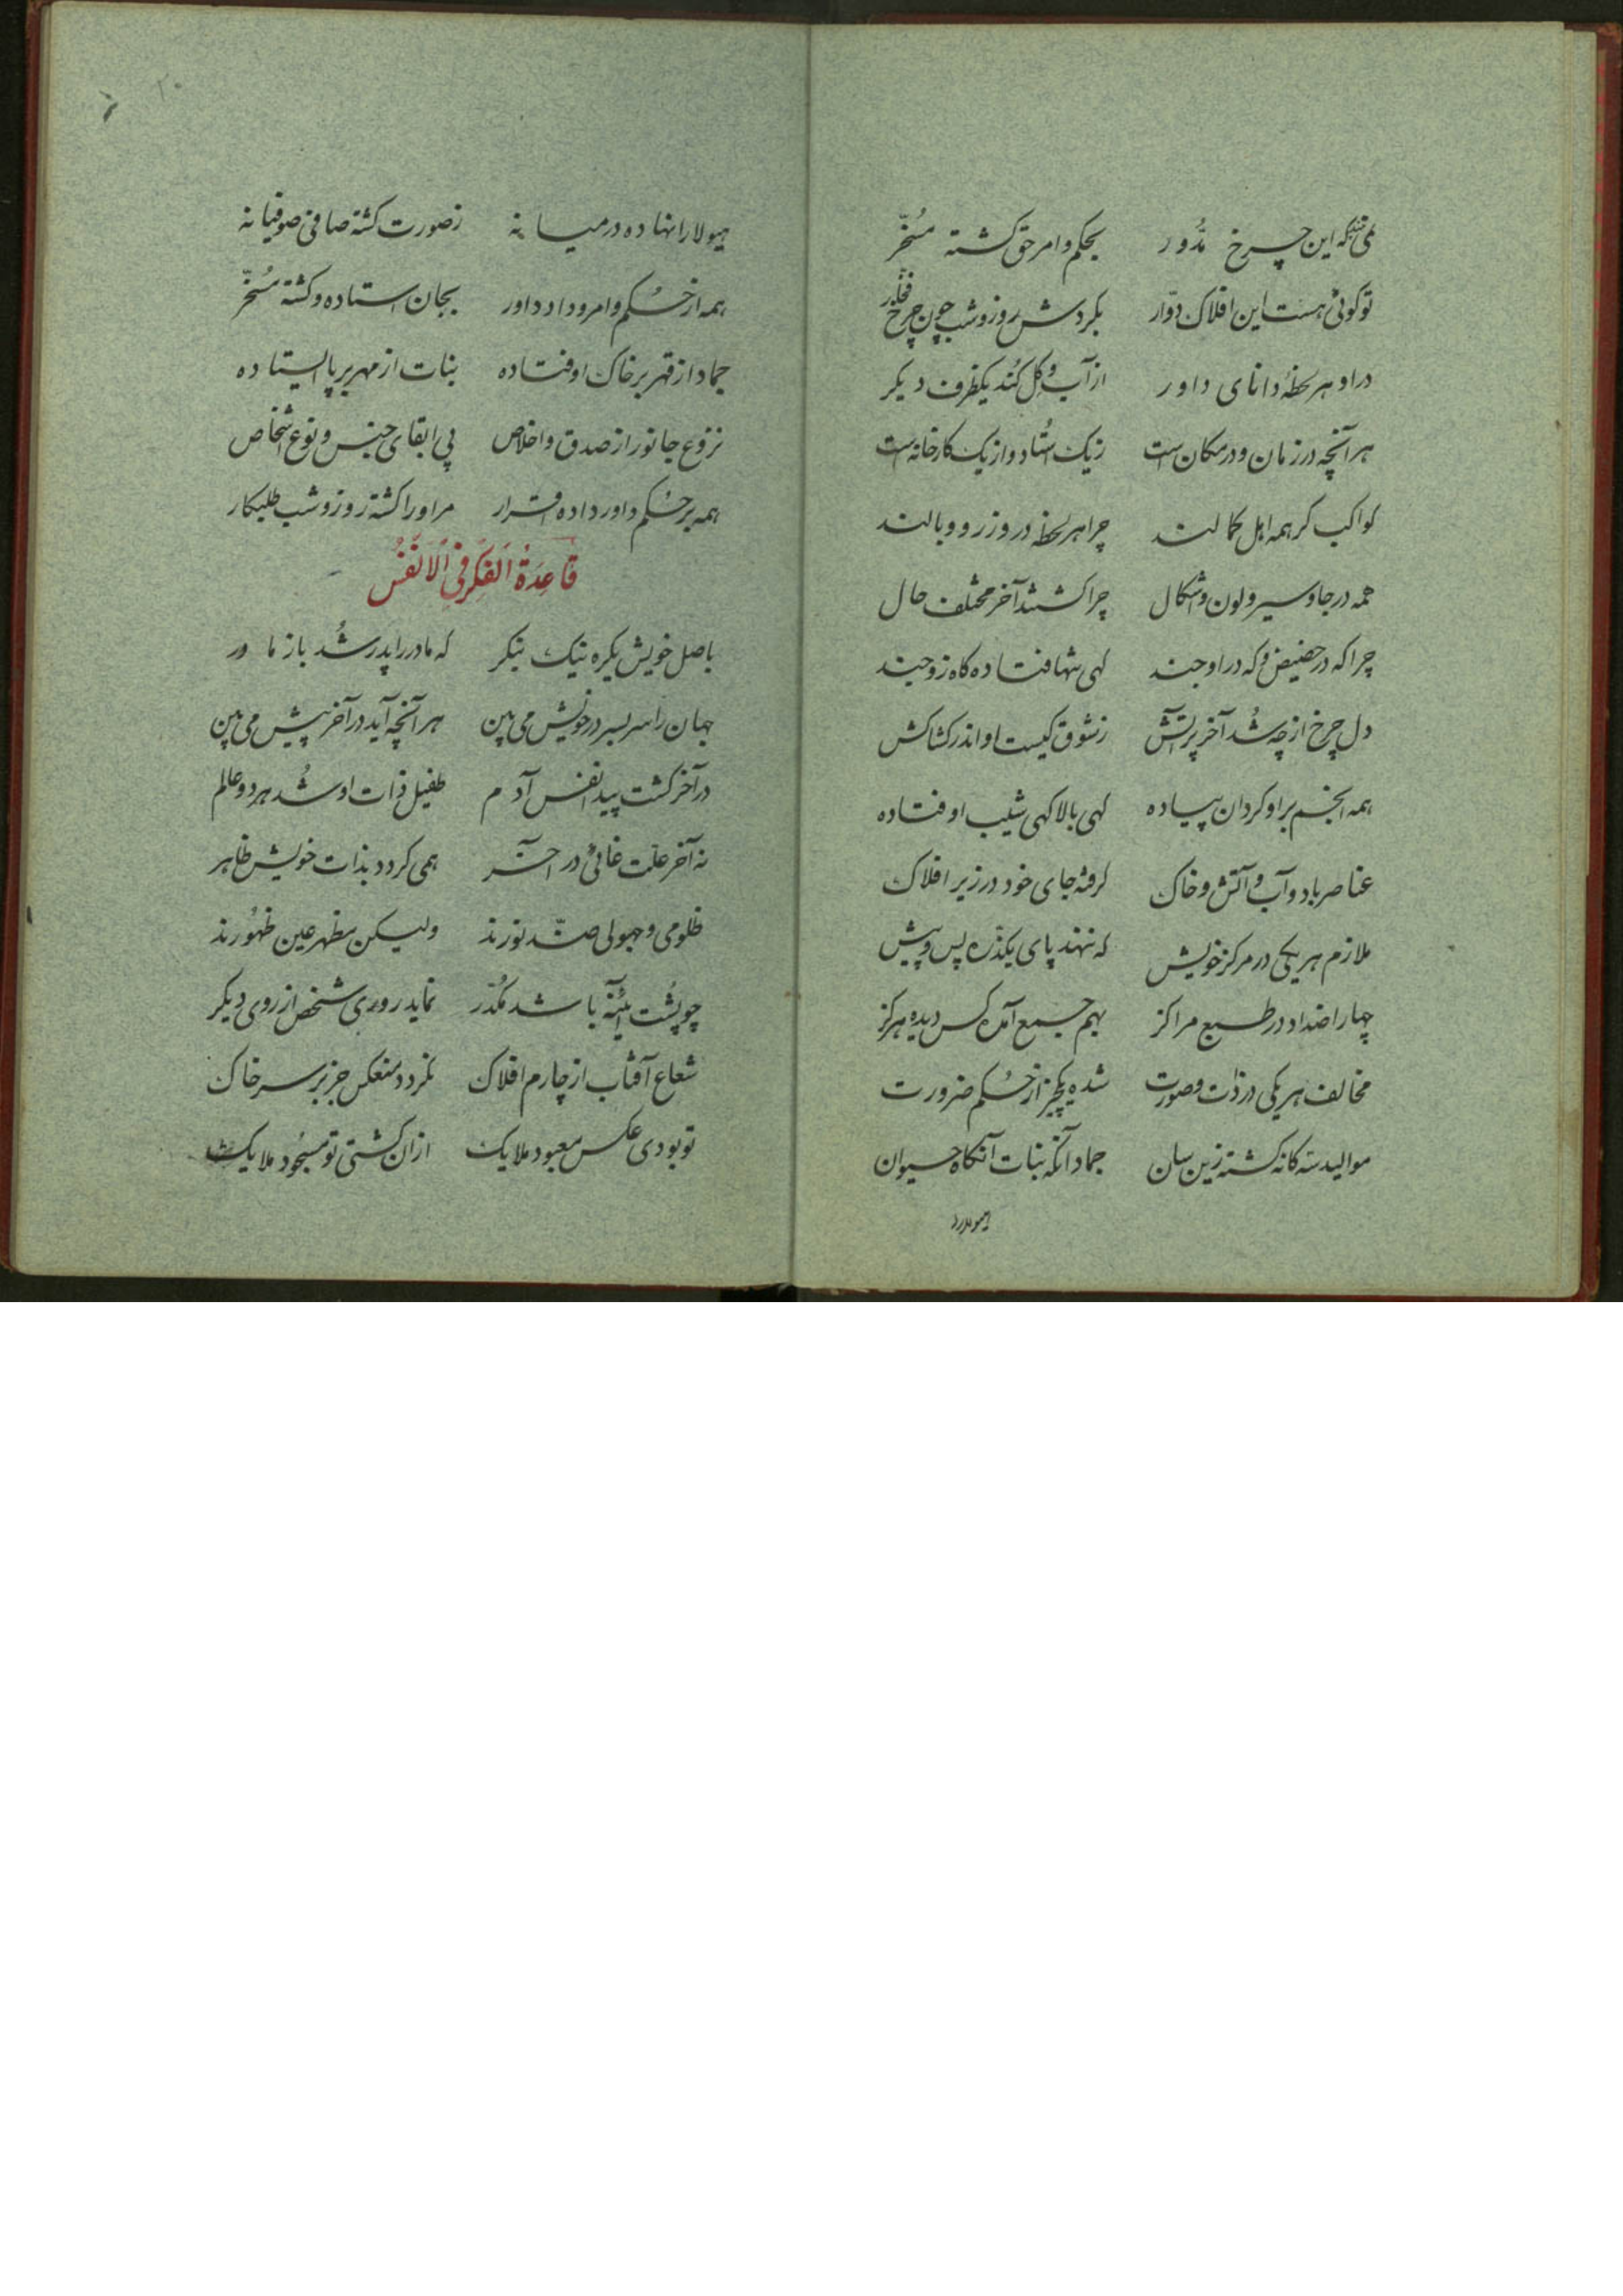 می‌بینی که این چرخ مُدَّور بحکم و امر حق کشته مُسَخّر
تو کوئی هست این افلاک دوّار بکردش روز و شب چون چرخ فخّار
در او هر لحظهٔ دانای داور از آب و کِل کُند یکظرف دیکر
هر آنچه در زمان و در مکان است ز یک اُستاد و از یک کارخانه است
کواکب کر همه اهل کمالند چرا هر لحظه در وز رو و بالند
همه در جا و سیر و لون و اشکال چرا کشتند آخر مختلف حال
چرا که در حضیض و که در اوجند کهی تنها فتاده کاه زوجند
دل چرخ از چه شُد آخر پر آتش ز شوق کیست او اندر کشاکش
همه انجم بر او کردان پیاده کهی بالا کهی شیب اوفتاده
عناصر باد و آب و آتش و خاک کرفته جای خود در زیر افلاک
ملازم هر یکی در مرکز خویش که ننهد پای یکذرّه پس و پیش
چهار اضداد در طبع مراکز بهم جمع آمده کس دیده هرکز
مخالف هر یکی در ذات و صورت شده یکچیز از حُکم ضرورت
موالید سه کانه کشته زین سان جماد آنکه نبات آنکاه حیوان
هیولا را نهاده در میانه ز صورت کشته صافی صوفیانه
همه از حُکم و امر و داد داور بجان استاده و کشته مُسَخّر
جماد از قهر بر خاک اوفتاده نبات از مهر بر پا ایستاده
نزوع جانور از صدق و اخلاص پی ابقای جنس و نوع اشخاص
همه بر حُکم داور داده اقرار مر او را کشته روز و شب طلبکار
قَاعِدَةُ الفِکرِ فِی الاَنفُس
باصل خویش یکره نیک بنکر که مادر را پدر شُد باز مادر
جهان را سر بسر در خویش می بین هر آنچه آید در آخر پیش می بین
در آخر کشت پیدا نفس آدم طفیل ذات او شُد هر دو عالم
نه آخر علّت غائی در آخر همی کردد بذات خویش ظاهر
ظلومی و جهولی ضدّ نورند ولیکن مظهر عین ظهُورند
چو پُشت آئینه باشد مُکدّر نماید روری شخص از روی دیکر
شعاع آفتاب از چارم افلاک نکردد منعکس جز بر سر خاک
تو بودی عکس معبود ملایک از ان کشتی تو مسجُود ملایک